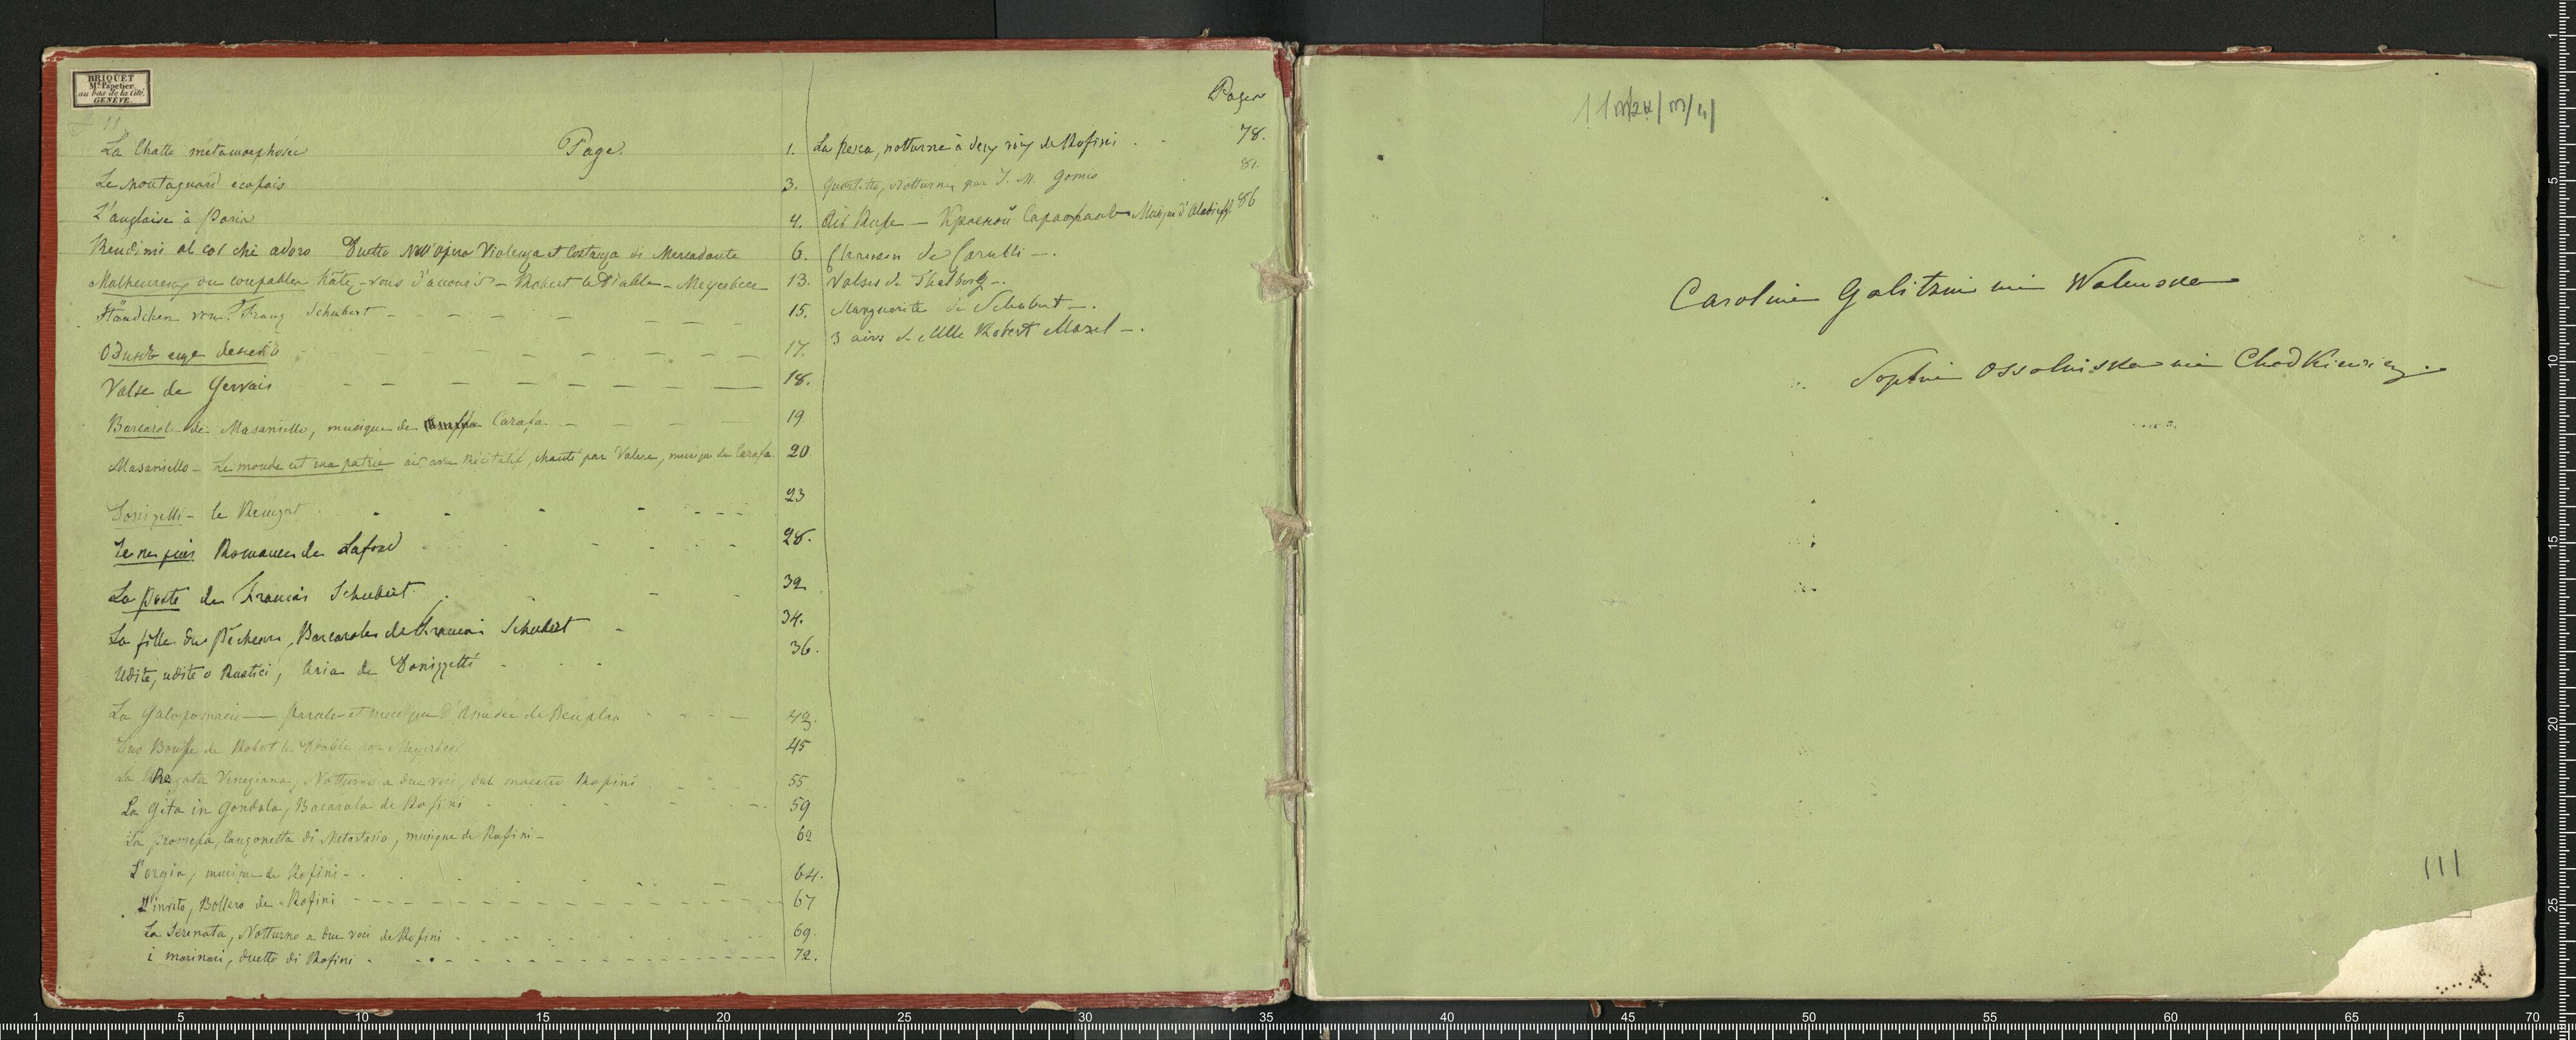 BRIQUET
Md. Papetier
au bas de la Cité.
GENÈVE.
Page.
La Chatte métamorphosée 1.
Le Montagnard écossais 3.
L'anglaise à Paris 4.
Rendimi al cor che adoro Duetto Nell'opera Violenza et Costanza di Mercadante 6.
Malheureux ou coupable hâtez-vous d'accourir - Robert le Diable - Meyerbeer 13.
Ständchen von Franz Schubert 15.
17.
Valse de Gervais 18.
Barcarol de Masaniello, musique de Carafa 19
Masaniello - Le monde est ma patrie air avec Récitatif, chanté par Valere, musique de Carafa 20
Donizetti - le Renégat 23
Je ne puis Romance de Lafond 28.
La Poste de François Schubert 32
La fille du Pêcheur, Barcarole de François Schubert 34.
Udite, udite o Rustici, Aria de Donizzetti 36.
La Galopomanie — Parole et musique d'Amédée de Beauplan 42.
Duo Bouffe de Robert le Diable par Meyerbeer 45
La Regata Veneziana, Notturno a due voci, del maestro Rossini 55
La Gita in Gondola, Bacarola de Rossini 59
La Promessa, Canzonetta di Metastasio, musique de Rossini - 62
L'orgia, musique de Rossini - 64.
L'invito, Bollero de Rossini 67
La Serenata, Notturno a due voci de Rossini 69.
i marinari, duetto di Rossini 72.
Pages
La pesca, notturne à deux voix de Rossini 78.
Notturne, par J. M. Gomis 81.
Air Russe — Красной Сарафанъ Musique d'Alabieff 86
Chanson de Carulli —.
Valses de Thalberg —.
Marguerite de Schubert —.
3 airs de Mlle Robert Mazel —.
Caroline Galitzin née Walewska
Sophie Ossolinska née Chodkiewicz.
111